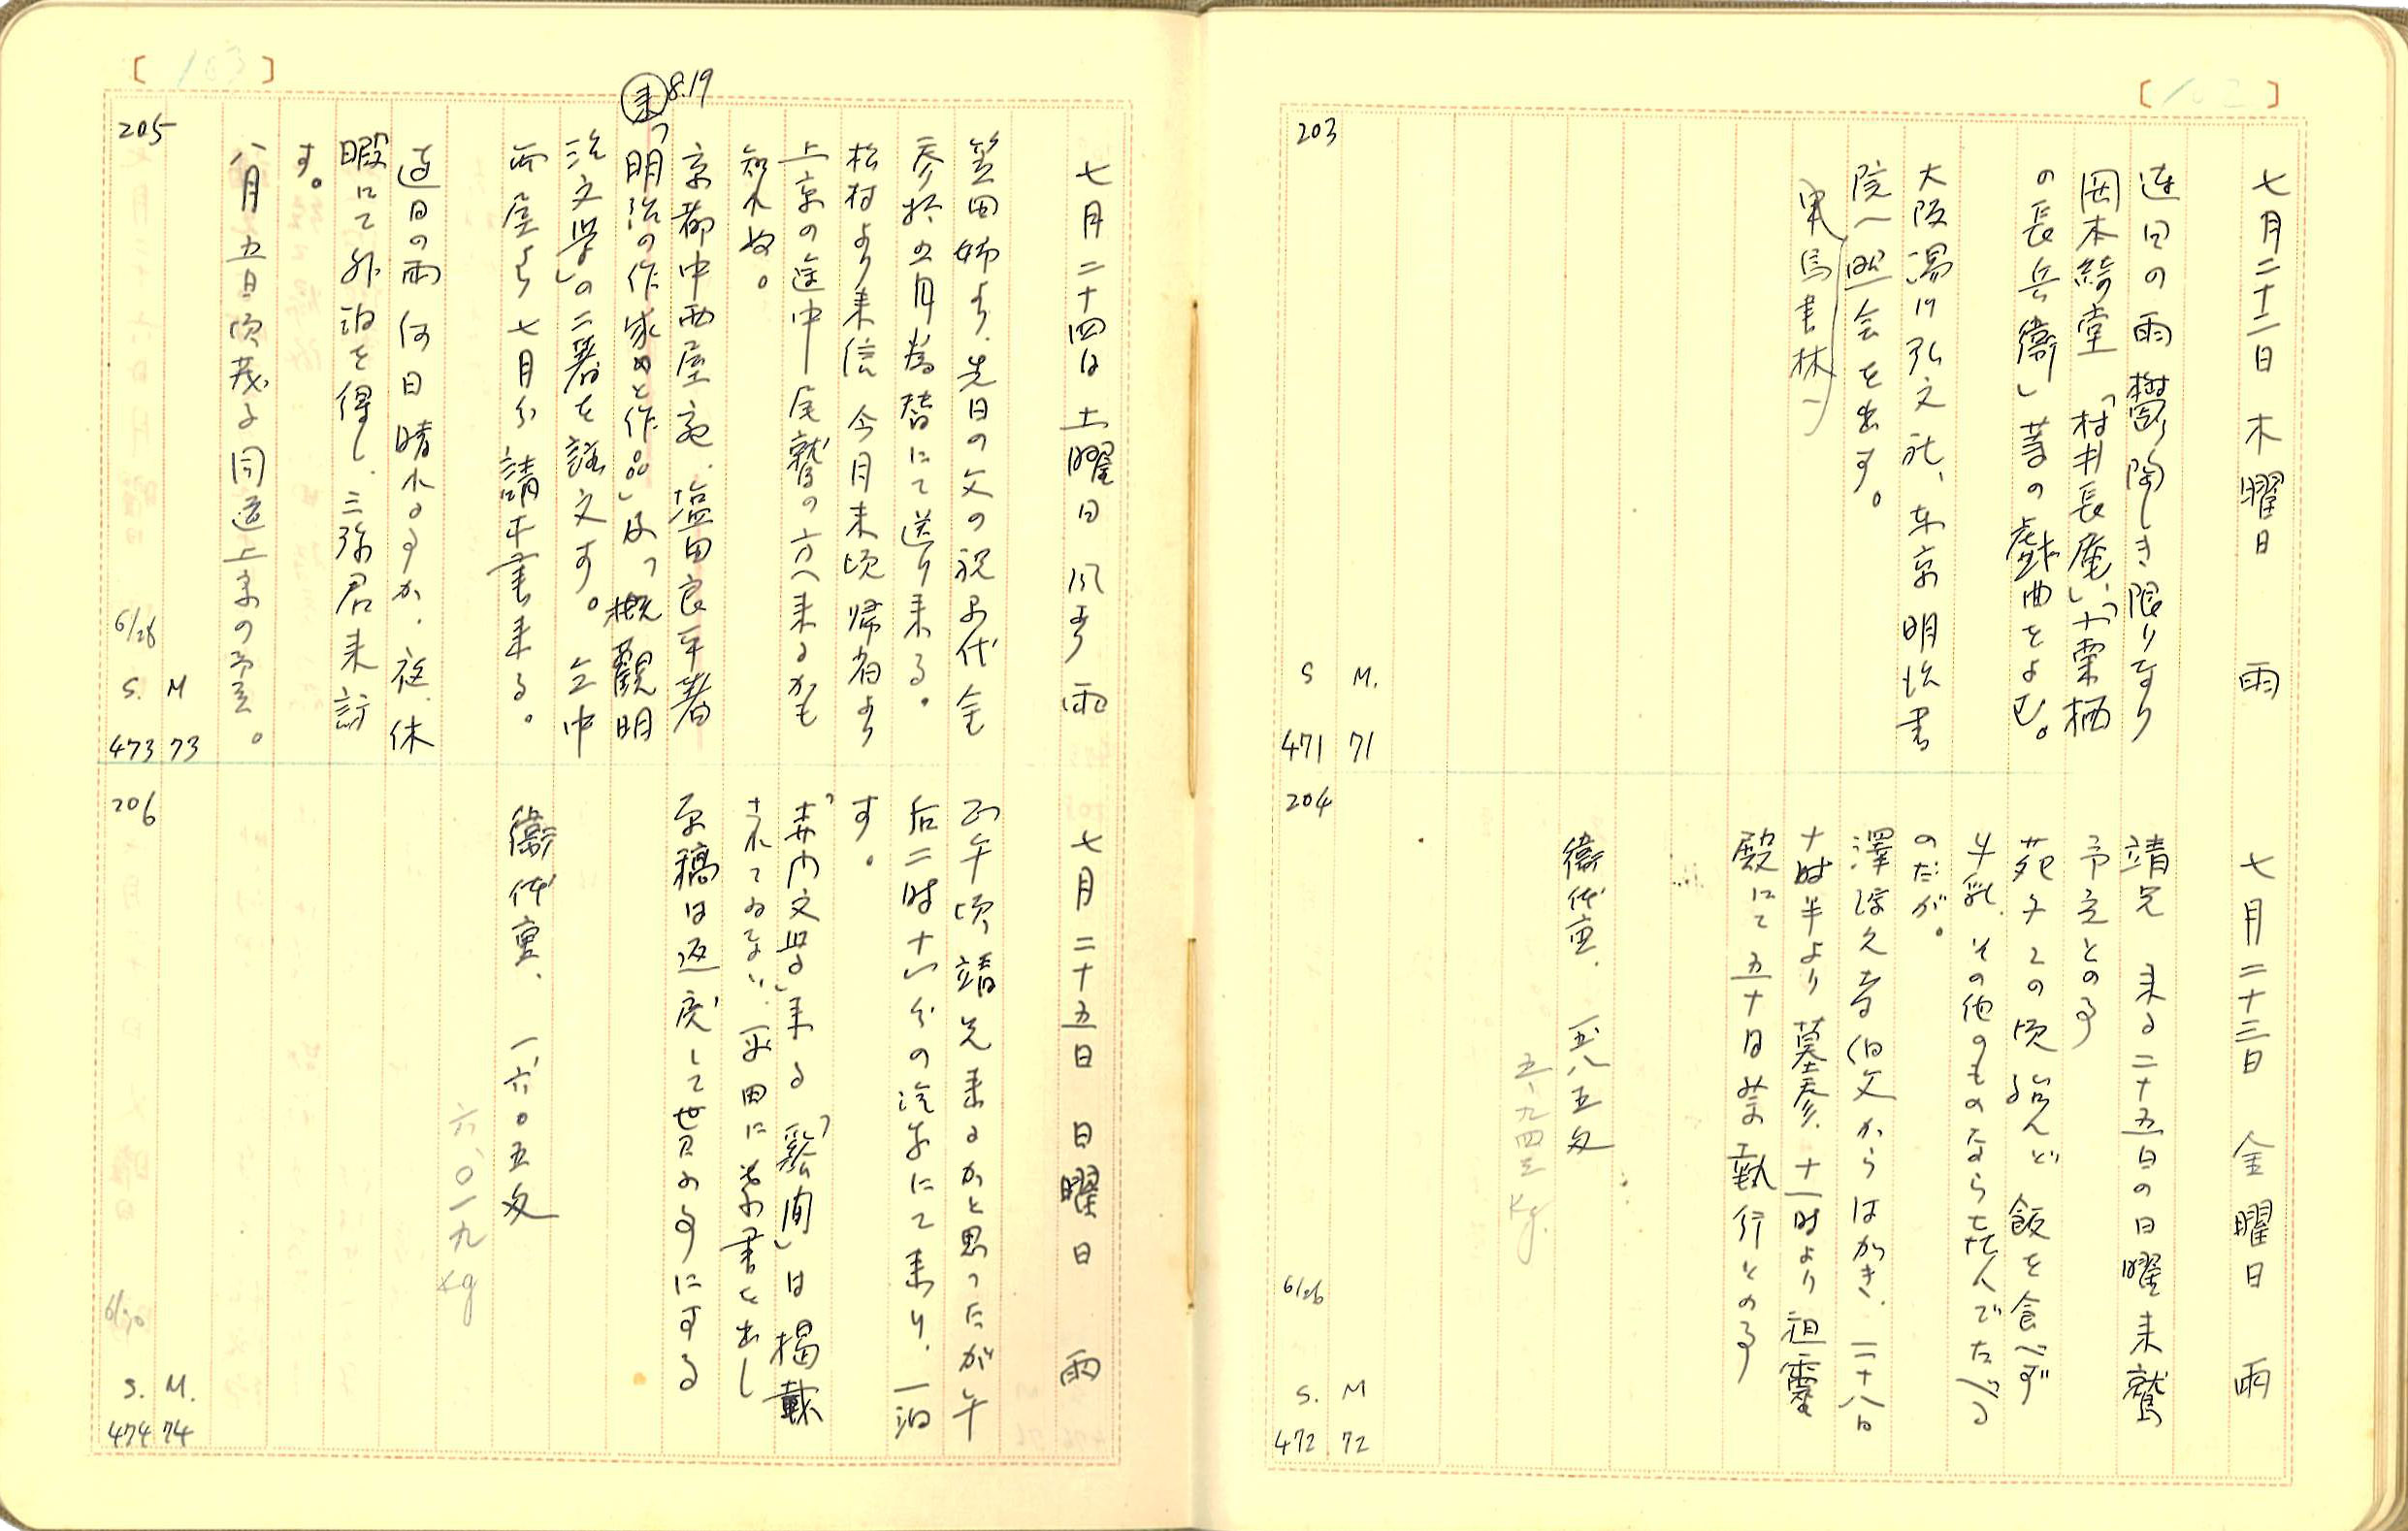 七月二十二日 木曜日 雨
連日の雨 鬱陶しき限りなり
岡本綺堂「村井長庵」、「小栗栖
の長兵衛」等の戯曲をよむ。
大阪湯川弘文社、東京明治書
院へ照会を出す。
203
M. 71
S 471
七月二十三日 金曜日 雨
靖兄 来る二十五日の日曜来鷲
予定との事
苑子この頃殆んど飯を食べず
牛乳、その他のものなら喜んでたべる
のだが。
澤 伯父からはがき、二十八日
十時半より墓参、十一時より祖霊
殿にて五十日祭執行との事
衛代重、一五八五匁
五、九四三kg.
204
6/26
M 72
S. 472
七月二十四日 土曜日 風雨
笠田姉より、先日の父の祝
参拾五円為替にて送り来る。
松村より来信 今月末頃帰省より
上京の途中尾鷲の方へ来るかも
知れぬ。
京都中西屋宛、塩田良平著
来 8.19
「明治の作家と作品」及「概観明
治文学」の二著を註文す。
西屋より七月分請求書来る。
連日の雨 何日晴れる事か、夜、休
暇にて外泊を得し、三弥君来訪
す。
八月五日頃茂子同道上京の予定。
205
6/28
M 73
S. 473
七月二十五日 日曜日 雨
正午頃靖兄来るかと思ったが午
后二時十八分の汽車にて来り、一泊
す。
来る「谿間」は掲載
されてゐない、平田に葉書を出し
原稿は返戻して貰ふ事にする
衛代重、一六〇五匁
六、〇一九kg
206
6/30
M. 74
S. 474